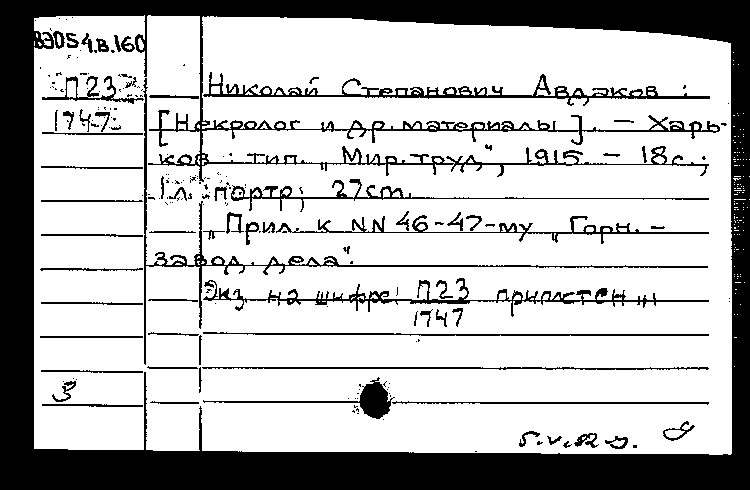 ВЭ054.в.160
П23
1747
Николай Степанович Авдаков :
[Некролог и др. материалы]. — Харь-
ков : тип. „Мир. труд", 1915. — 18с.;
1 л. портр; 27cm.
„Прил. к NN 46-47-му „Горн. -
завод. дела".
Экз. на шифре: П23
1747
приплетен